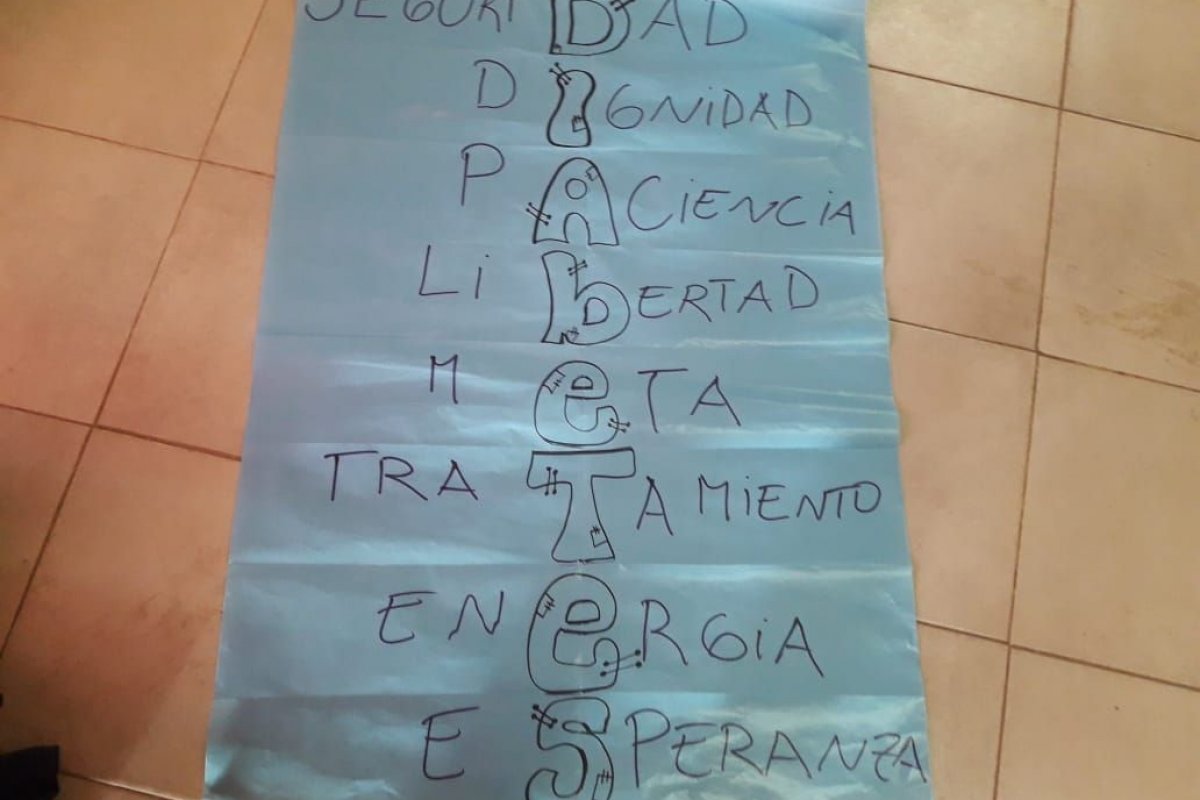 SEGURIDAD
DiGNiDAD
PACiENCiA
LibERTAD
MeTA
TRATAMiENTO
ENeRGiA
ESPERANZA